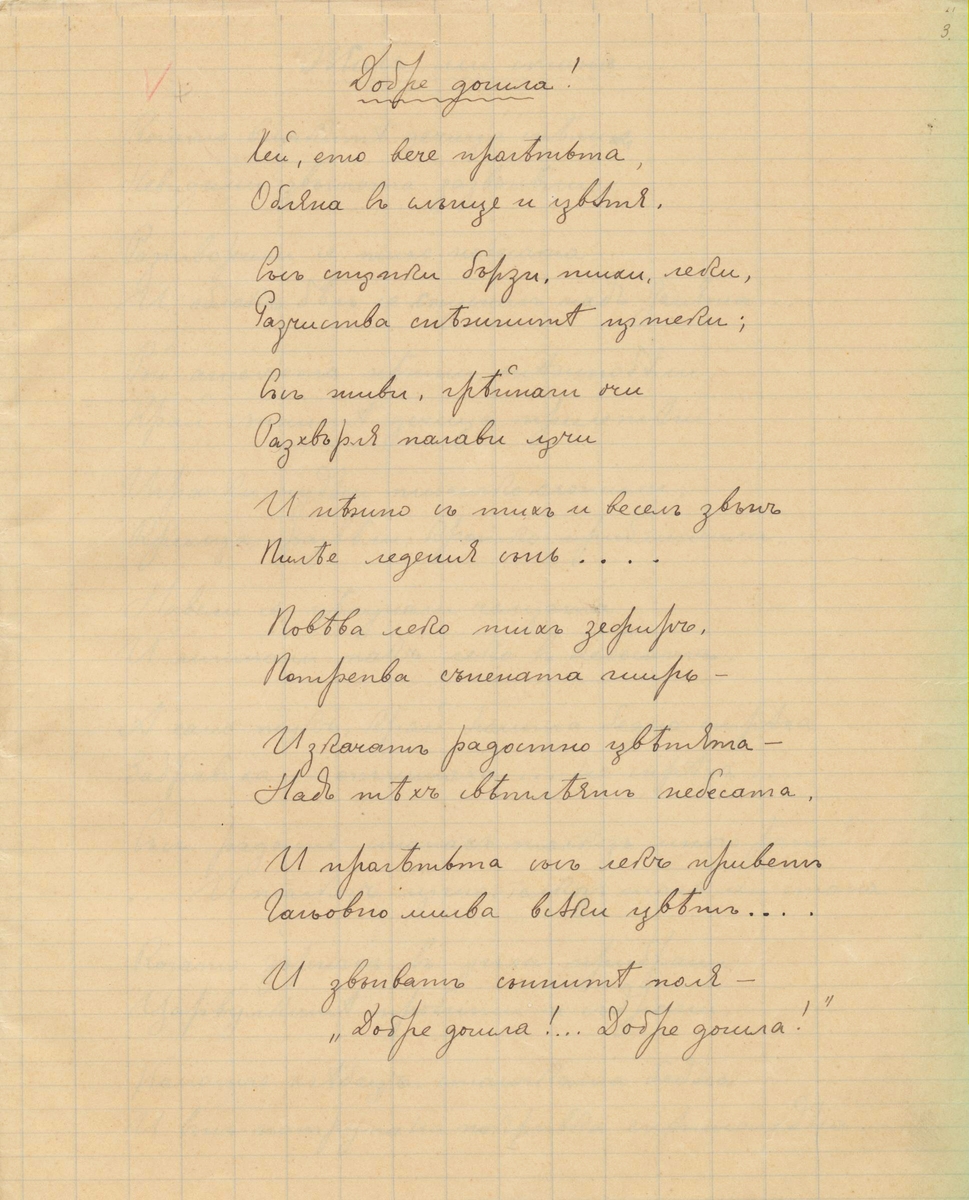 3.
Добре дошла!
Хей, ето вече пролѣтьта,
Обляна въ слънце и цвѣтя.
Със стъпки бързи, тихи, леки,
Разчиства снѣжнитѣ пътеки;
Със живи, грѣйнали очи
Разхвърля палави лъчи
И нѣжно съ тихъ и веселъ звънъ
Пилѣе ледения сънь....
Повѣва леко тихъ зефиръ,
Потрепва сънената ширь –
Изкачатъ радостно цвѣтята –
Надъ тѣхъ свѣтлѣятъ небесата.
И пролѣтьта със лекъ приветъ
Гальовно милва всѣки цвѣтъ....
И звънватъ сьннитѣ поля –
„Добре дошла!... Добре дошла!"